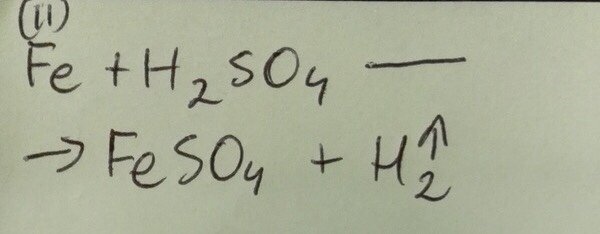 (11)
Fe + H₂SO₄ —
→ FeSO₄ + H₂↑